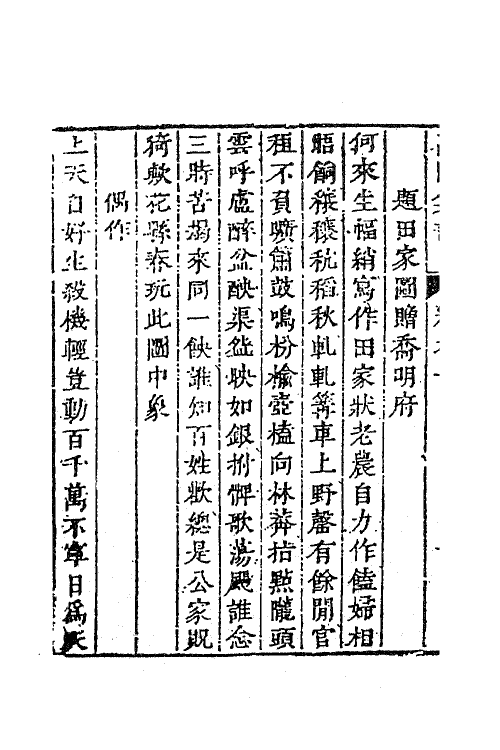 題田家圖贈喬明府
何來生福綃寫作田家狀老農自力作饁婦相
䎸餉穰穰秔稻秋軋軋篝車上野罄有餘閒官
租不負曠簫鼓鳴枌榆壺榼向林莽指點隴頭
雲呼盧醉盆醠渠盆映如銀拊惲歌蕩颺誰念
三時苦揭來同一餉誰知百姓歡總是公家貺
猗歟花縣春玩此圖中象
偶作
上天自好生殺機輕豈動百千萬不寧日為天